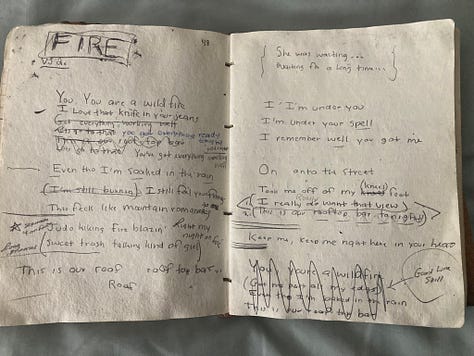 FIRE
98
V3d.
You You are a wild fire
I Love that knife in your jeans
Got everything working well
you got everything ready
our roof top bar
You've got everything
Even tho I'm soaked in the rain
(I'm still burning) I still feel your
This feels like mountain romance
Judo hiking fire blazin'
Sweet trash talking kind of girl
This is our roof roof top bar
Roof
{ She was waiting...
Waiting for a long time... }
I I'm under you
I'm under your spell
I remember well you got me
On onto the street
Took me off of my feet
(knees)
I really do want that view
This is our rooftop bar tonight
Keep me, keep me right here in your head
You You're a wildfire
Got me past all my edges
Even tho I'm soaked in the rain
This is our roof top bar
Good Luck
Spill